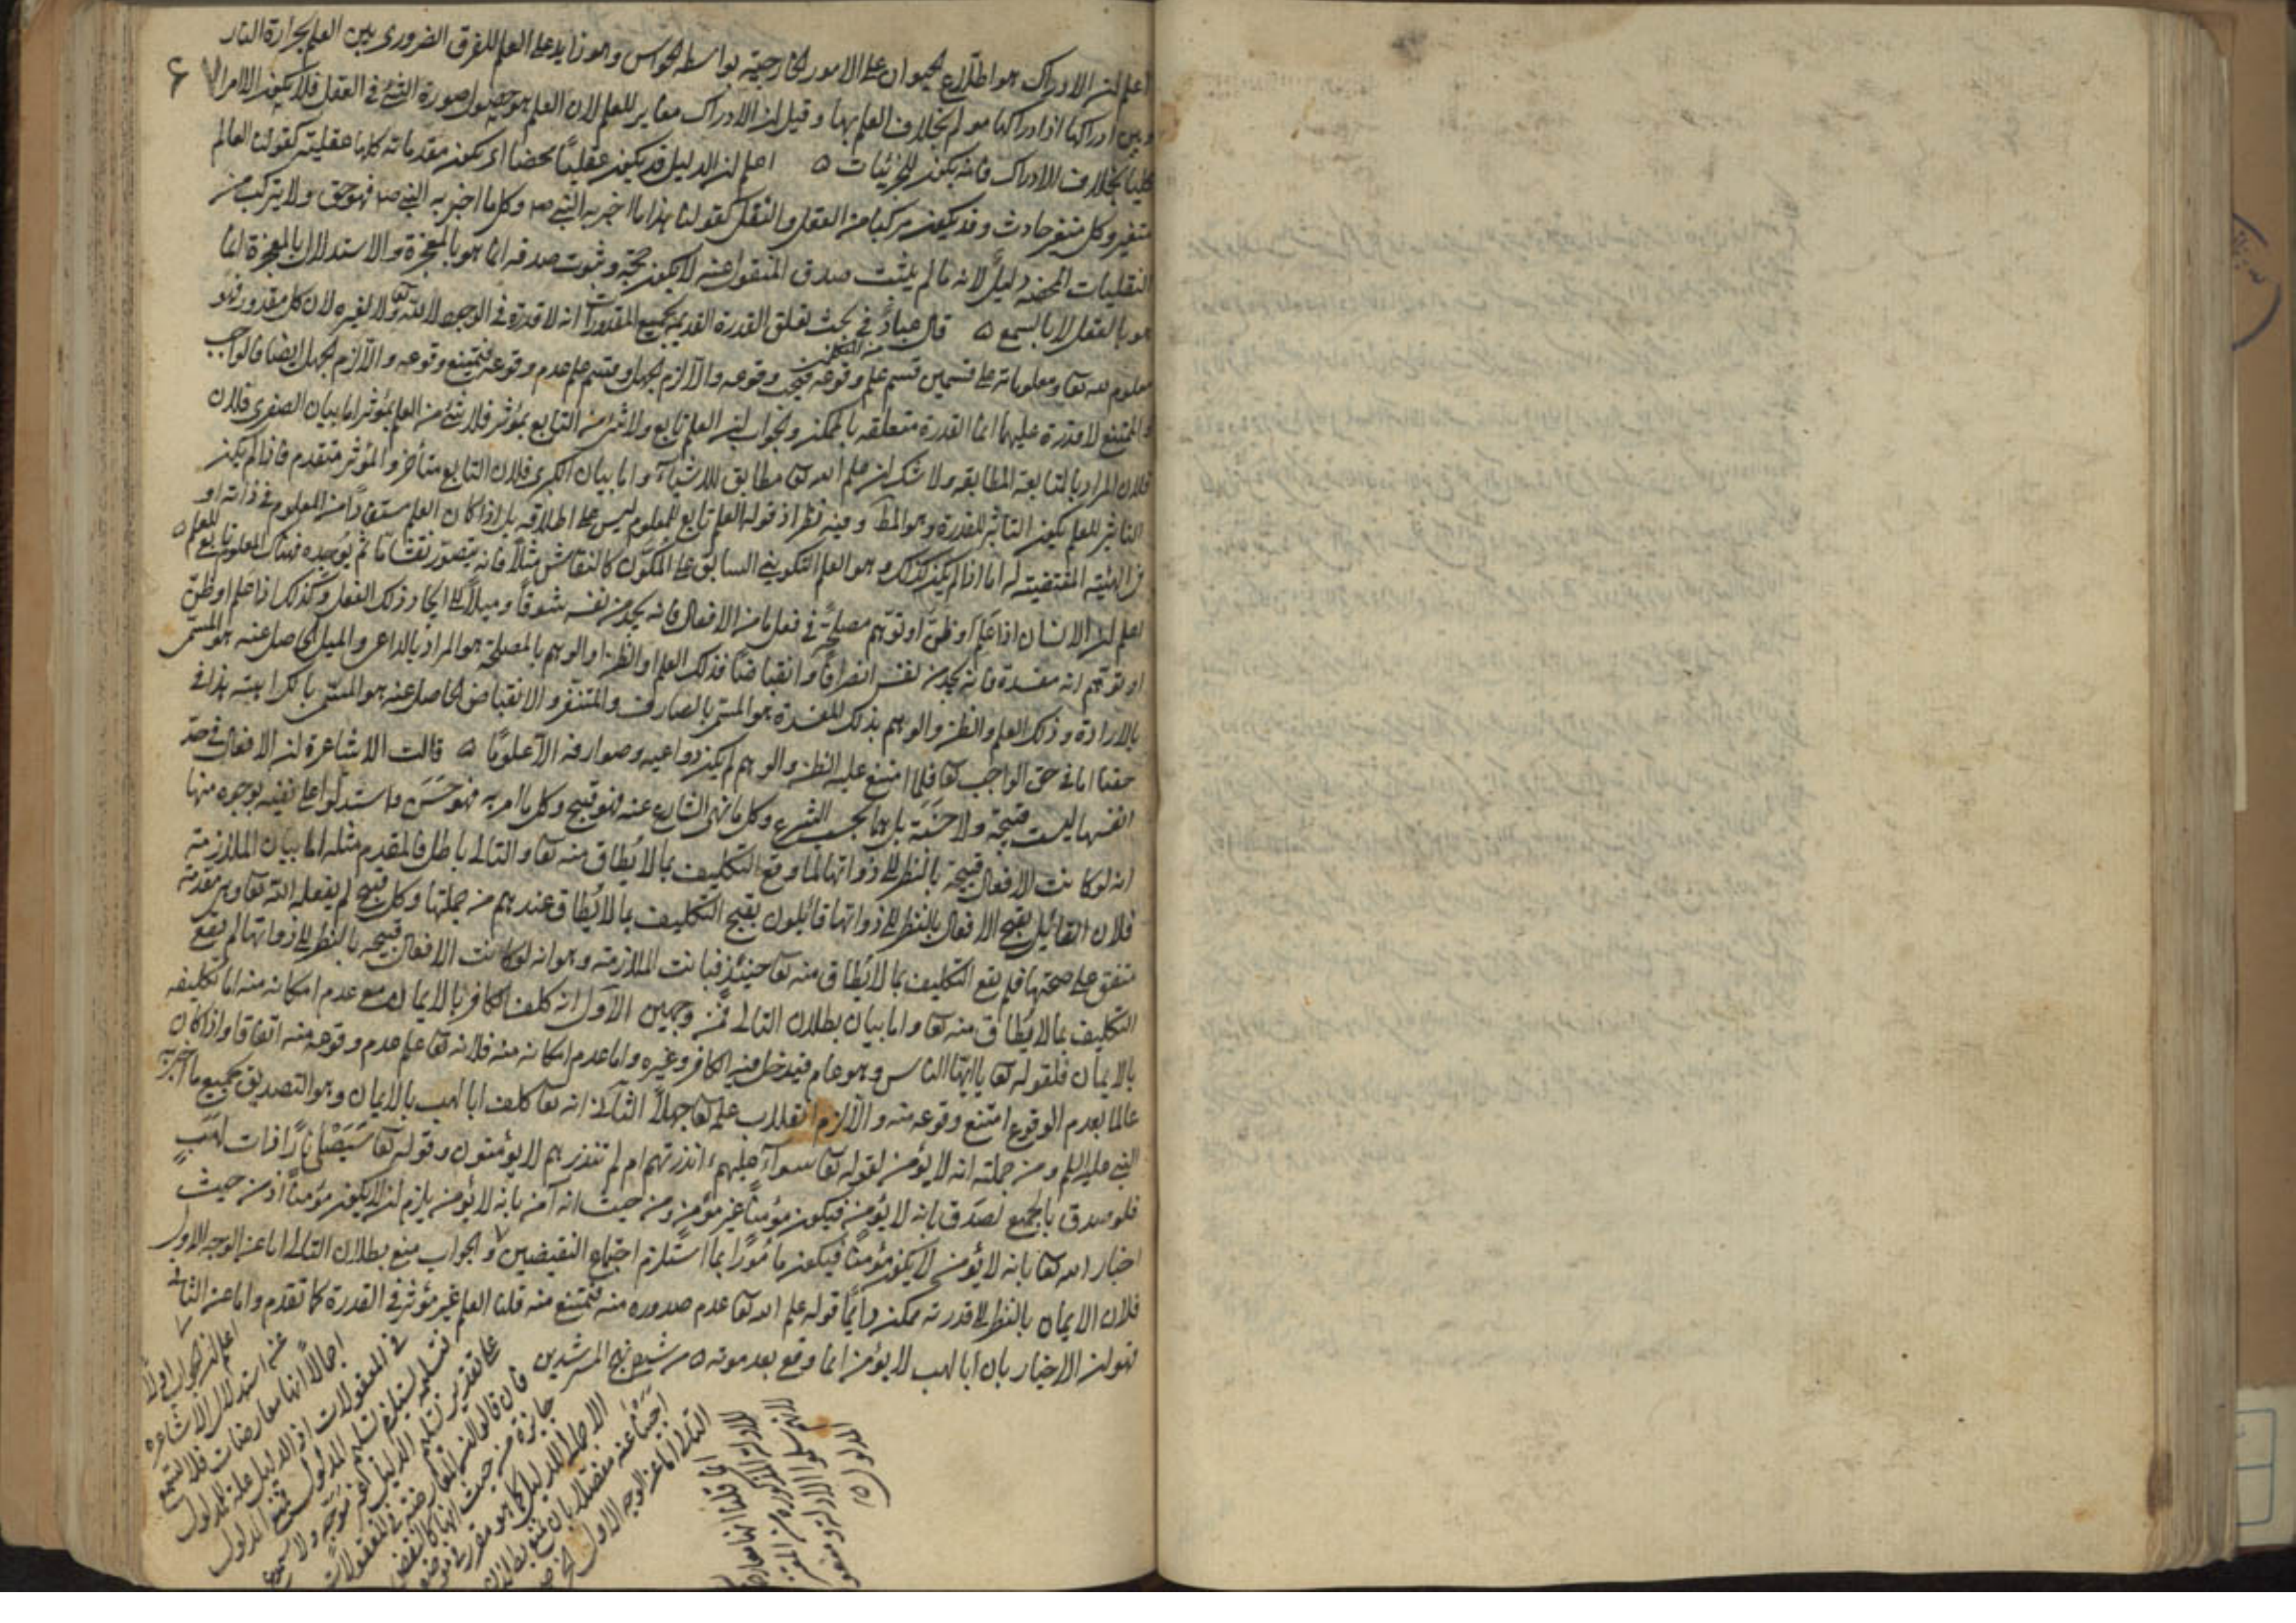 اعلم ان الادراك هو اطلاع الحيوان على الامور الخارجية بواسطة الحواس وهو زايد على العلم للفرق الضرورى بين العلم بحرارة النار
وبين ادراكها اذ ادراكها مولم بخلاف العلم بها وقيل ان الادراك مغاير للعلم لان العلم هو حصول صورة الشئ فى العقل فلا يكون الا امرا
كليا بخلاف الادراك فانه يكون للجزئيات ه اعلم ان الدليل قد يكون عقليا محضا اى يكون مقدماته كلها عقلية كقولنا العالم
متغير وكل متغير حادث وقد يكون مركبا من العقل والنقل كقولنا هذا ما اخبر به النبى ص وكل ما اخبر به النبى ص فهو حق ولا يتركب من
النقليات المحضة دليل لانه ما لم يثبت صدق المنقول عنه لا يكون حجة وثبوت صدقه انما هو بالمعجزة والاستدلال بالمعجزة انما
هو بالعقل لا بالسمع ه قال عباد فى بحث تعلق القدرة القديمة بجميع المقدورات انه لا قدرة فى الوجود لا لله تعا ولا لغيره لان كل مقدور فهو
معلوم لله تعا ومعلوماته على قسمين قسم علم وقوعه فيجب وقوعه والا لزم الجهل وقسم علم عدم وقوعه فيمتنع وقوعه والا لزم الجهل ايضا فالواجب
والممتنع لا قدرة عليهما انما القدرة متعلقة بالممكن والجواب ان العلم تابع ولا شئ من التابع بمؤثر فلا شئ من العلم بمؤثر اما بيان الصغرى فلان
فلان المراد بالتابعة المطابقة ولا شك ان علم الله تعا مطابق للاشياء واما بيان الكبرى فلان التابع متأخر والمؤثر متقدم فاذا لم يكن
التاثير للعلم يكون التاثير للقدرة وهو المط وفيه نظر اذ قوله العلم تابع للمعلوم ليس على اطلاقه بل اذا كان العلم مستفادا من المعلوم فى ذاته او
فى الهيئة المقتضية له اما اذا لم يكن كذلك وهو العلم التكوينى السابق على المكون كالنقاش مثلا فانه يتصور نقشا ما ثم يوجده فهناك المعلوم تابع للعلم ه
اعلم ان الانسان اذا علم او ظن او توهم مصلحة فى فعل ما من الافعال فانه يجد من نفسه شوقا وميلا الى ايجاد ذلك الفعل وكذلك اذا علم او ظن
او توهم انه مفسدة فانه يجد من نفسه انصرافا وانقباضا فذلك العلم او الظن او الوهم بالمصلحة هو المراد بالداعى والميل الحاصل عنه هو المسمى
بالارادة وذلك العلم والظن والوهم بذلك المفسدة هو المسمى بالصارف والمتنفر والانقباض الحاصل عنه هو المسمى بالكراهية هذا فى
حقنا اما فى حق الواجب تعا فلما امتنع عليه الظن والوهم لم يكن دواعيه وصوارفه الا علوما ه قالت الاشاعرة ان الافعال فى حد
انفسها ليست قبيحة ولا حسنة بل هما بحسب الشرع وكل ما نهى الشارع عنه فهو قبيح وكل ما امر به فهو حسن واستدلوا على نفيه بوجوه منها
انه لو كانت الافعال قبيحة بالنظر الى ذواتها لما وقع التكليف بما لا يطاق منه تعا والتالى باطل فالمقدم مثله اما بيان الملازمة
فلان القائل بقبح الافعال بالنظر الى ذواتها قائلون بقبح التكليف بما لا يطاق عندهم من جملتها وكل قبيح لم يفعله الله تعا وهى مقدمة
متفق على صحتها فلم يقع التكليف بما لا يطاق منه تعا حينئذ فبانت الملازمة وهو انه لو كانت الافعال قبيحة بالنظر الى ذواتها لم يقع
التكليف بما لا يطاق منه تعا واما بيان بطلان التالى فمن وجهين الاول انه كلف الكافر بالايمان مع عدم امكانه منه اما تكليفه
بالايمان فلقوله تعا يا ايها الناس وهو عام فيدخل فيه الكافر وغيره واما عدم امكانه منه فلانه تعا علم عدم وقوعه منه اتفاقا واذا كان
عالما بعدم الوقوع امتنع وقوعه منه والا لزم انقلاب علمه تعا جهلا الثانى انه تعا كلف ابا لهب بالايمان وهو التصديق بجميع ما اخبر به
النبى عليه السلم ومن جملته انه لا يؤمن لقوله تعا سواء عليهم ءانذرتهم ام لم تنذرهم لا يؤمنون وقوله تعا سيصلى نارا ذات لهب
فلو صدق بالجميع لصدق بانه لا يؤمن فيكون مؤمنا غير مؤمن ومن حيث انه آمن بانه لا يؤمن يلزم ان لا يكون مؤمنا اذ من حيث
اخبار الله تعا بانه لا يؤمن لا يكون مؤمنا فيكون مامورا بما استلزم اجتماع النقيضين والجواب منع بطلان التالى اما عن الوجه الاول
فلان الايمان بالنظر الى قدرته ممكن دايما قوله علم الله تعا عدم صدوره منه فيمتنع منه قلنا العلم غير مؤثر فى القدرة كما تقدم واما عن الثانى
فهو ان الاخبار بان ابا لهب لا يؤمن انما وقع بعد موته ه من شرح نهج المسترشدين
اعلم ان الجواب اولا
عن استدلال الاشاعره
اجمالا انها معارضات فلا تسمع
فى المعقولات اذ الدليل علة المدلول
فتسليمه يستلزم تسليم المدلول فمنع المدلول
على تقدير تسليم الدليل غير موجه ولا مسموع
فان قالوا ان المعارضة فى المعقولات
جايزة من حيث انها كالنقض
الاجمالى للدليل كما هو مقرر فى موضعه
اجبنا عنه مفصلا بان نمنع بطلان
التالى اما عن الوجه الاول الخ